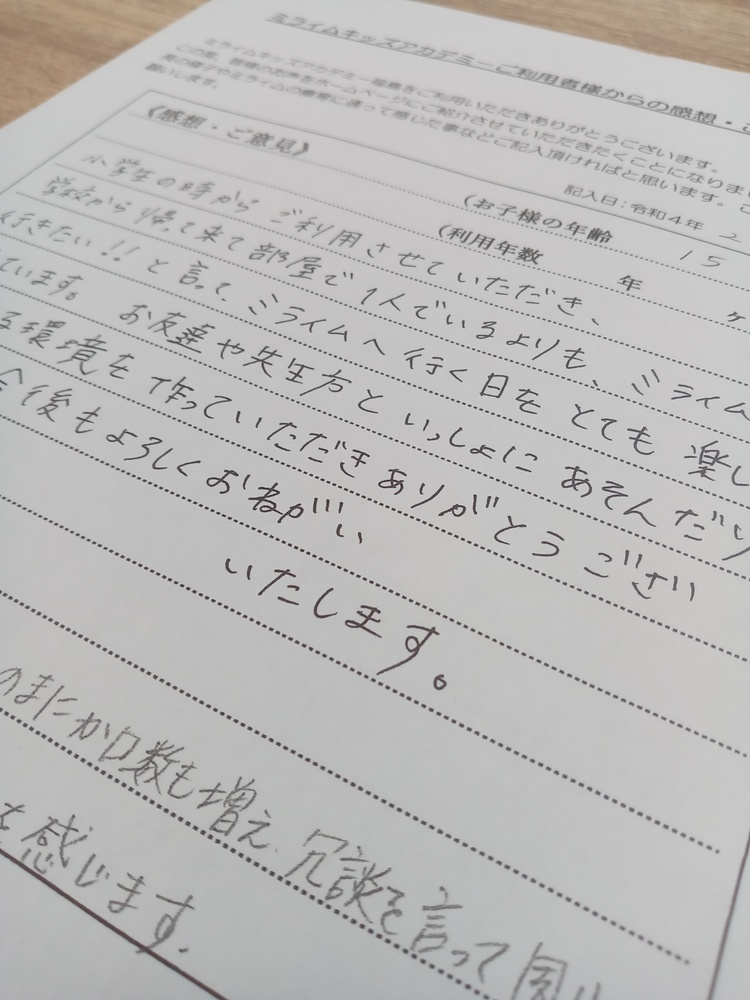 ミライムキッズアカデミーご利用者様からの感想・ご
ミライムキッズアカデミー
をご利用いただきありがとうございます。
この度、皆様のお声をホームページにご紹介させていただきたくことになりまし
夫の様子やミライムの療育に通って感じた事などご記入頂ければと思います。
願いします。
記入日：令和4年 2
《感想・ご意見》
(お子様の年齢 15
(利用年数 年 ヶ
小学生の時から ご利用させていただき、
学校から帰って来て部屋で1人でいるよりも、ミライム
行きたい!!と言って、ミライムへ行く日をとても楽し
ています。 お友達や先生方といっしょに あそんだり
る環境を作っていただきありがとうござい
今後もよろしくおねがい
いたします。
のまにか口数も増え、冗談を言って周
を感じます。